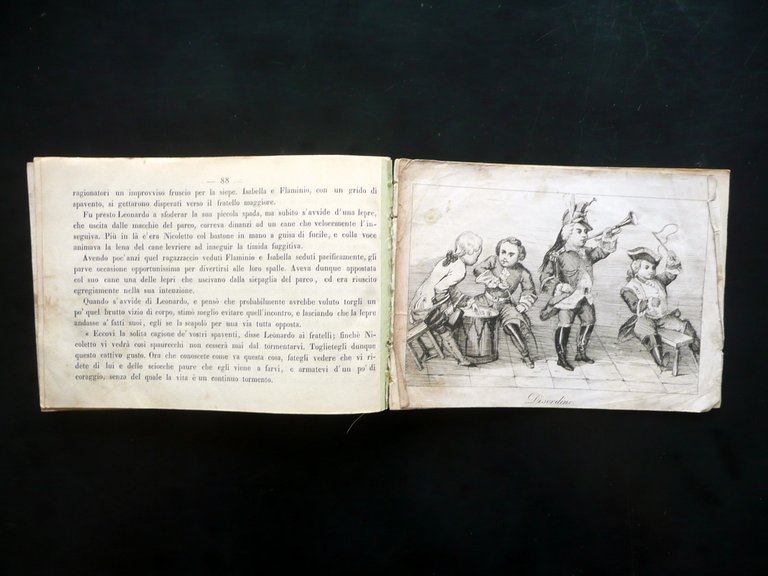 — 88 —
ragionatori un improvviso fruscio per la siepe. Isabella e Flaminio, con un grido di
spavento, si gettarono disperati verso il fratello maggiore.
Fu presto Leonardo a sfoderar la sua piccola spada, ma subito s'avvide d'una lepre,
che uscita dalle macchie del parco, correva dinanzi ad un cane che velocemente l'in-
seguiva. Più in là c'era Nicoletto col bastone in mano a guisa di fucile, e colla voce
animava la lena del cane levriere ad inseguir la timida fuggitiva.
Avendo poc'anzi quel ragazzaccio veduti Flaminio e Isabella seduti pacificamente, gli
parve occasione opportunissima per divertirsi alle loro spalle. Aveva dunque appostata
col suo cane una delle lepri che uscivano dalla siepaglia del parco, ed era riuscito
egregiamente nella sua intenzione.
Quando s'avvide di Leonardo, e pensò che probabilmente avrebbe voluto torgli un
po' quel brutto vizio di corpo, stimò meglio evitare quell'incontro, e lasciando che la lepre
andasse a' fatti suoi, egli se la scapolò per una via tutta opposta.
« Eccovi la solita cagione de' vostri spaventi, disse Leonardo ai fratelli; finchè Ni-
coletto vi vedrà così spaurecchi non cesserà mai dal tormentarvi. Toglietegli dunque
questo cattivo gusto. Ora che conoscete come va questa cosa, fategli vedere che vi ri-
dete di lui e delle sciocche paure che egli viene a farvi, e armatevi d'un po' di
coraggio, senza del quale la vita è un continuo tormento.
Disordine